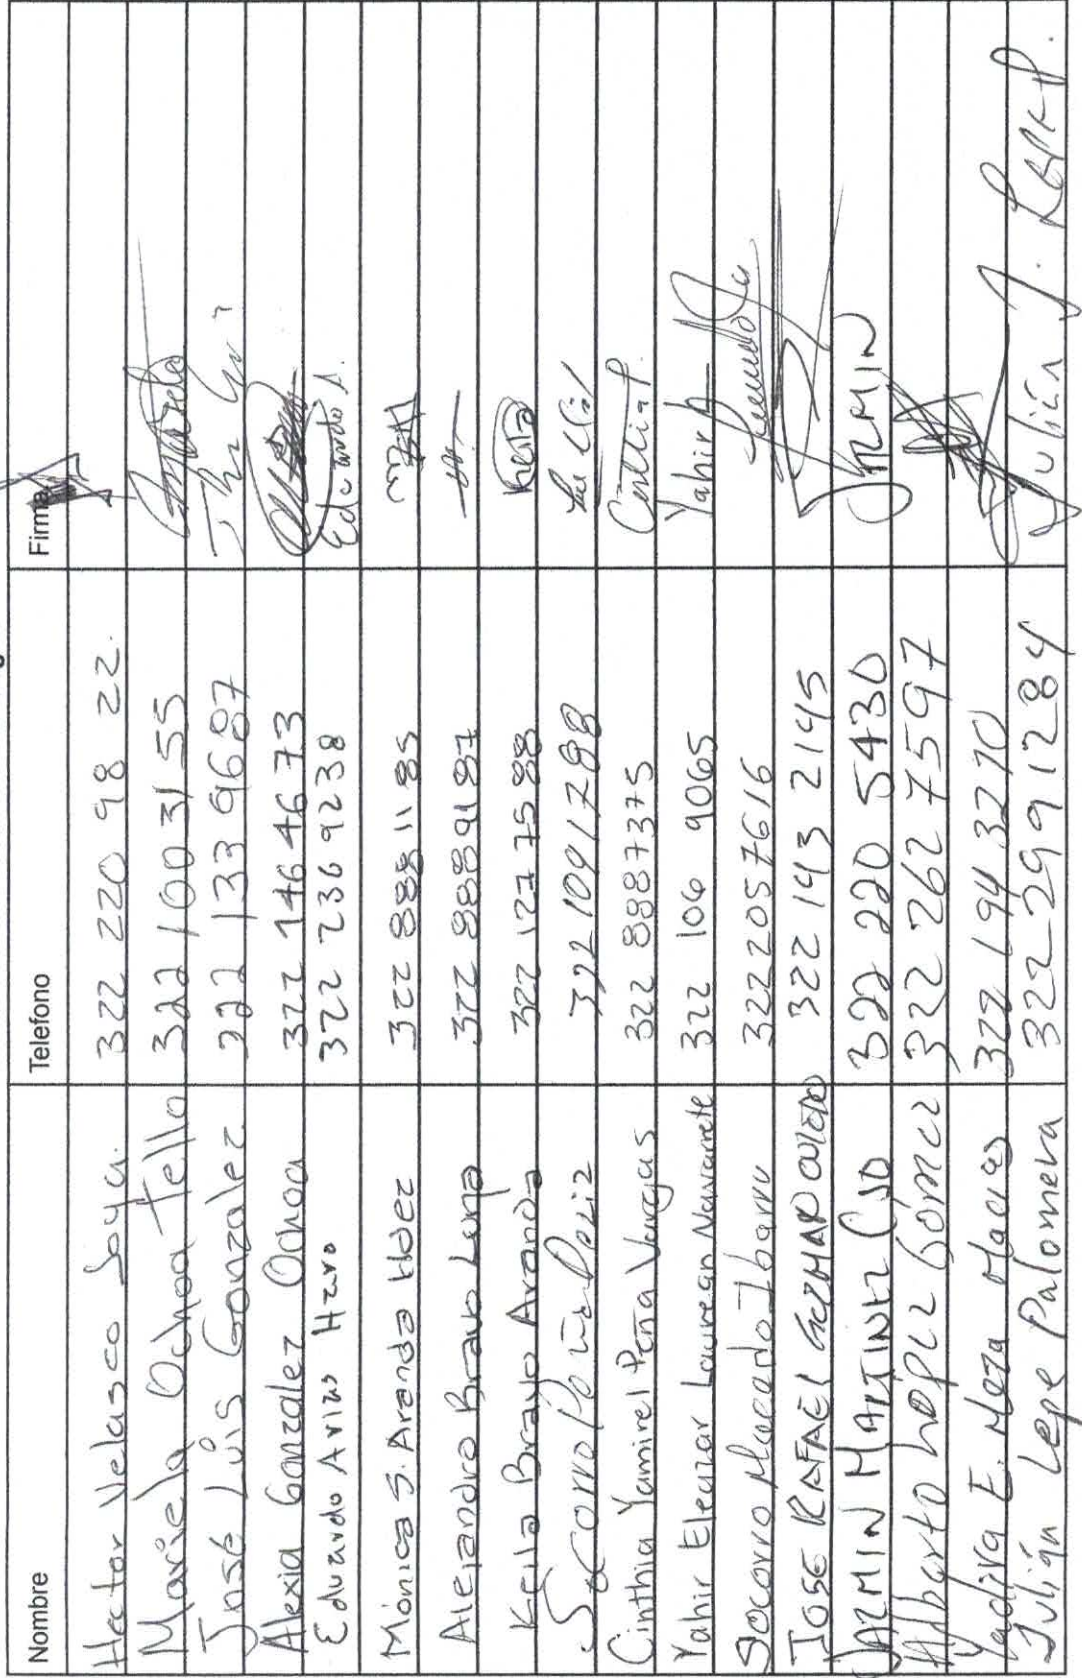 Nombre Telefono Firma
Hector Velasco Soya. 322 220 98 22.
Mariela Ochoa Tello 322 100 31 55 Mariela
José Luis Gonzalez 322 133 9687
Alexia Gonzalez Ochoa 322 146 46 73
Eduardo Arias Haro 322 236 9238 Eduardo A.
Mónica S. Aranda Hdez 322 888 11 85
Alejandro Bravo Luna 322 888 91 87
Keila Bravo Aranda 322 127 75 88 Keila
Socorro 322 109 1788
Cinthia Yamirel Peña Vargas 322 8887375 Cinthia P.
Yahir Eleazar Laurean Navarrete 322 106 9065 Yahir
Socorro Macedo Ibarra 3222057616
JOSE RAFAEL GUZMAN 322 143 2145
JAZMIN MARTINEZ CID 322 220 5430 JAZMIN
Alberto López Gómez 322 262 7597
Yadira E. Meza Macias 322 194 3270
Julián Lepe Palomera 322 299 1284 Julián J. Lepe P.